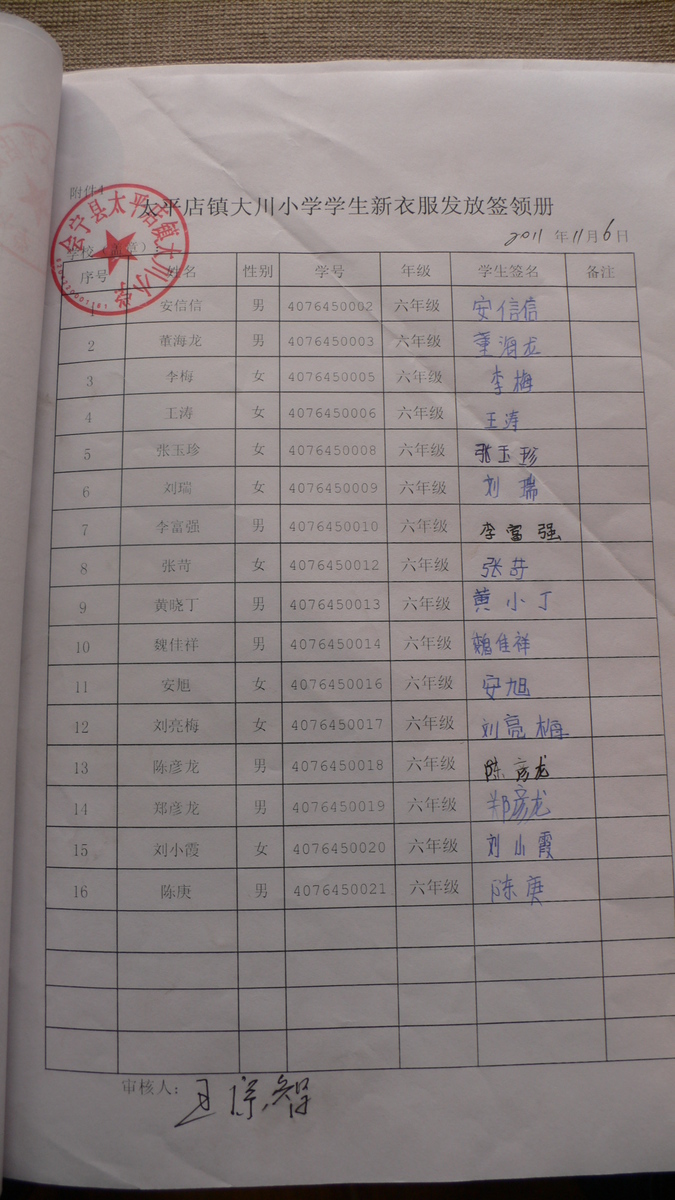 附件4
太平店镇大川小学学生新衣服发放签领册
会宁县太平店镇大川小学
学校（盖章） 2011 年 11 月 6 日
序号 姓名 性别 学号 年级 学生签名 备注
1 安信信 男 4076450002 六年级 安信信
2 董海龙 男 4076450003 六年级 董海龙
3 李梅 女 4076450005 六年级 李梅
4 王涛 女 4076450006 六年级 王涛
5 张玉珍 女 4076450008 六年级 张玉珍
6 刘瑞 女 4076450009 六年级 刘瑞
7 李富强 男 4076450010 六年级 李富强
8 张苛 女 4076450012 六年级 张苛
9 黄晓丁 男 4076450013 六年级 黄小丁
10 魏佳祥 男 4076450014 六年级 魏佳祥
11 安旭 女 4076450016 六年级 安旭
12 刘亮梅 女 4076450017 六年级 刘亮梅
13 陈彦龙 男 4076450018 六年级 陈彦龙
14 郑彦龙 男 4076450019 六年级 郑彦龙
15 刘小霞 女 4076450020 六年级 刘小霞
16 陈庚 男 4076450021 六年级 陈庚
审核人：